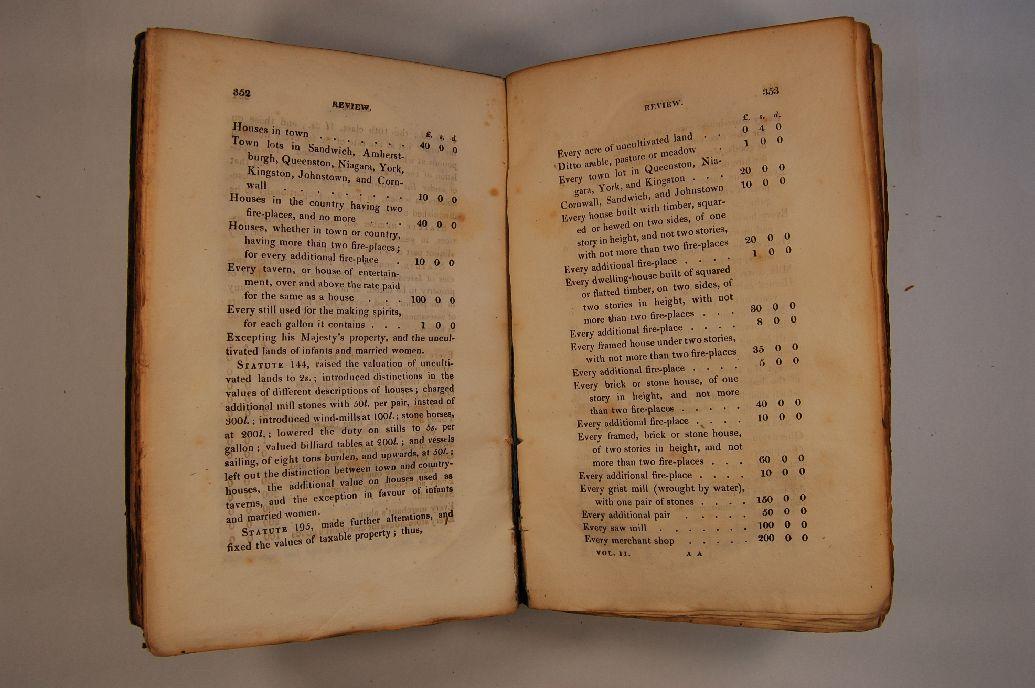 352
REVIEW.
£. s. d.
Houses in town . . . . . . . 40 0 0
Town lots in Sandwich, Amherst-
burgh, Queenston, Niagara, York,
Kingston, Johnstown, and Corn-
wall . . . . . . . . . 10 0 0
Houses in the country having two
fire-places, and no more . . . . 40 0 0
Houses, whether in town or country,
having more than two fire-places;
for every additional fire-place . 10 0 0
Every tavern, or house of entertain-
ment, over and above the rate paid
for the same as a house . . . 100 0 0
Every still used for the making spirits,
for each gallon it contains . . . 1 0 0
Excepting his Majesty's property, and the uncul-
tivated lands of infants and married women.
STATUTE 144, raised the valuation of unculti-
vated lands to 2s.; introduced distinctions in the
values of different descriptions of houses; charged
additional mill stones with 50l. per pair, instead of
300l.; introduced wind-mills at 100l.; stone horses,
at 200l.; lowered the duty on stills to 5s. per
gallon; valued billiard tables at 200l.; and vessels
sailing, of eight tons burden, and upwards, at 50l.;
left out the distinction between town and country-
houses, the additional value on houses used as
taverns, and the exception in favour of infants
and married women.
STATUTE 195, made further alterations, and
fixed the values of taxable property; thus,
REVIEW.
353
£. s. d.
Every acre of uncultivated land . . 0 4 0
Ditto arable, pasture or meadow . . 1 0 0
Every town lot in Queenston, Nia-
gara, York, and Kingston . . . 20 0 0
Cornwall, Sandwich, and Johnstown 10 0 0
Every house built with timber, squar-
ed or hewed on two sides, of one
story in height, and not two stories,
with not more than two fire-places 20 0 0
Every additional fire-place . . . . 1 0 0
Every dwelling-house built of squared
or flatted timber, on two sides, of
two stories in height, with not
more than two fire-places . . . 30 0 0
Every additional fire-place . . . . 8 0 0
Every framed house under two stories,
with not more than two fire-places 35 0 0
Every additional fire-place . . . . 5 0 0
Every brick or stone house, of one
story in height, and not more
than two fire-places . . . . . 40 0 0
Every additional fire-place . . . . 10 0 0
Every framed, brick or stone house,
of two stories in height, and not
more than two fire-places . . . 60 0 0
Every additional fire-place . . . . 10 0 0
Every grist mill (wrought by water),
with one pair of stones . . . . 150 0 0
Every additional pair . . . . . . 50 0 0
Every saw mill . . . . . . . 100 0 0
Every merchant shop . . . . . 200 0 0
VOL. II. A A